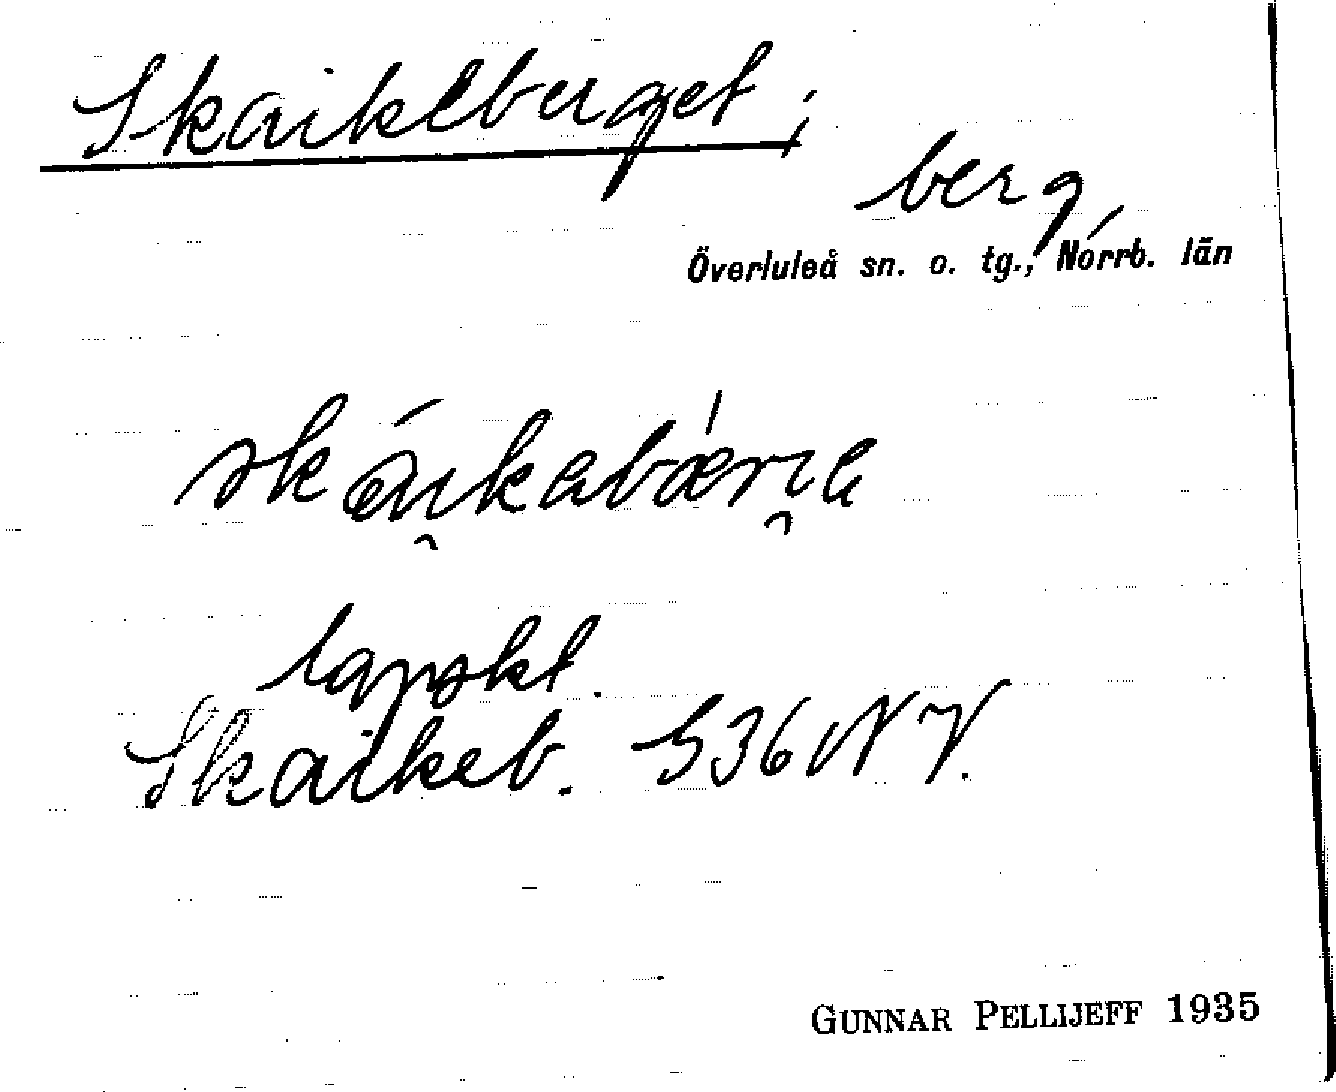 Skaikeberget;
berg,
Överluleå sn. o. tg., Norrb. län
skái̯kabæ̀ri̯e
lapskt.
Skaikeb. 536 NV.
GUNNAR PELLIJEFF 1935